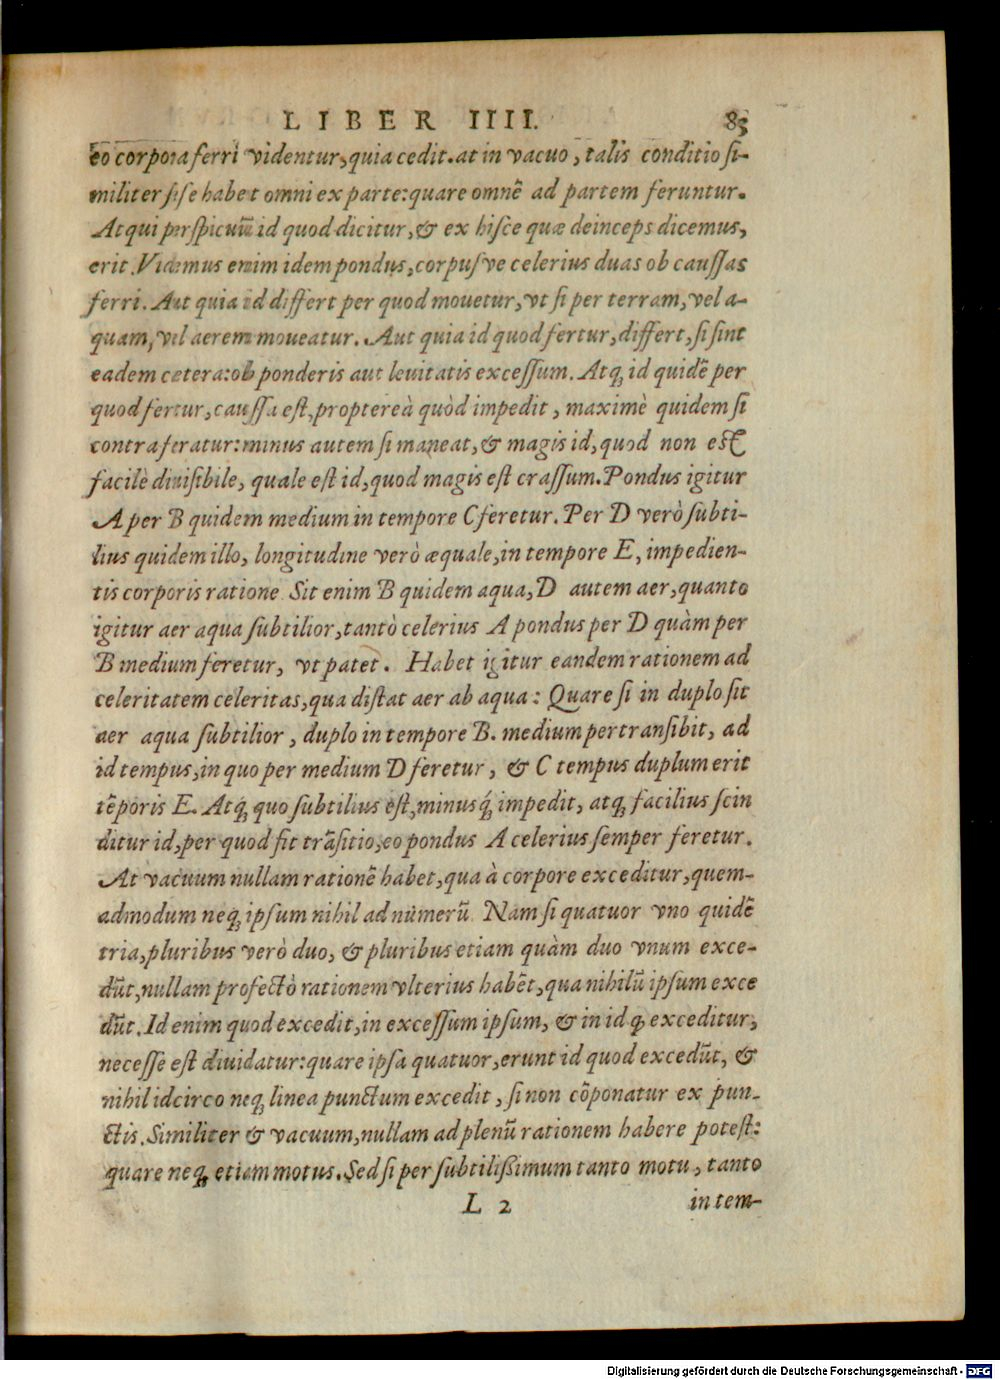 LIBER IIII. 83
eo corpora ferri videntur, quia cedit. at in vacuo, talis conditio si-
militer sese habet omni ex parte: quare omnē ad partem feruntur.
Atqui perspicuū id quod dicitur, & ex hisce quæ deinceps dicemus,
erit. Videmus enim idem pondus, corpusve celerius duas ob caussas
ferri. Aut quia id differt per quod mouetur, vt si per terram, vel a-
quam, vel aerem moueatur. Aut quia id quod fertur, differt, si sint
eadem cetera: ob ponderis aut leuitatis excessum. Atq; id quidē per
quod fertur, caussa est, propterea quòd impedit, maximè quidem si
contra feratur: minus autem si maneat, & magis id, quod non est
facilè diuisibile, quale est id, quod magis est crassum. Pondus igitur
A per B quidem medium in tempore C feretur. Per D verò subti-
lius quidem illo, longitudine verò æquale, in tempore E, impedien-
tis corporis ratione. Sit enim B quidem aqua, D autem aer, quanto
igitur aer aqua subtilior, tantò celerius A pondus per D quàm per
B medium feretur, vt patet. Habet igitur eandem rationem ad
celeritatem celeritas, qua distat aer ab aqua: Quare si in duplo sit
aer aqua subtilior, duplo in tempore B. medium pertransibit, ad
id tempus, in quo per medium D feretur, & C tempus duplum erit
tēporis E. Atq; quo subtilius est, minusq́; impedit, atq; facilius scin
ditur id, per quod fit trāsitio, eo pondus A celerius semper feretur.
At vacuum nullam rationē habet, qua à corpore exceditur, quem-
admodum neq; ipsum nihil ad numerū. Nam si quatuor vno quidē
tria, pluribus verò duo, & pluribus etiam quàm duo vnum exce-
dūt, nullam profectò rationem vlterius habēt, qua nihilū ipsum exce
dūt. Id enim quod excedit, in excessum ipsum, & in id q; exceditur,
necesse est diuidatur: quare ipsa quatuor, erunt id quod excedūt, &
nihil idcirco neq; linea punctum excedit, si non cōponatur ex pun-
ctis. Similiter & vacuum, nullam ad plenū rationem habere potest:
quare neq; etiam motus. Sed si per subtilißimum tanto motu, tanto
L 2 in tem-
Digitalisierung gefördert durch die Deutsche Forschungsgemeinschaft - DFG